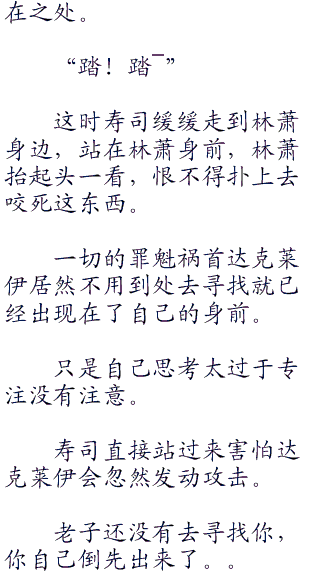 在之处。
“踏！踏¯”
这时寿司缓缓走到林萧
身边，站在林萧身前，林萧
抬起头一看，恨不得扑上去
咬死这东西。
一切的罪魁祸首达克莱
伊居然不用到处去寻找就已
经出现在了自己的身前。
只是自己思考太过于专
注没有注意。
寿司直接站过来害怕达
克莱伊会忽然发动攻击。
老子还没有去寻找你，
你自己倒先出来了。。